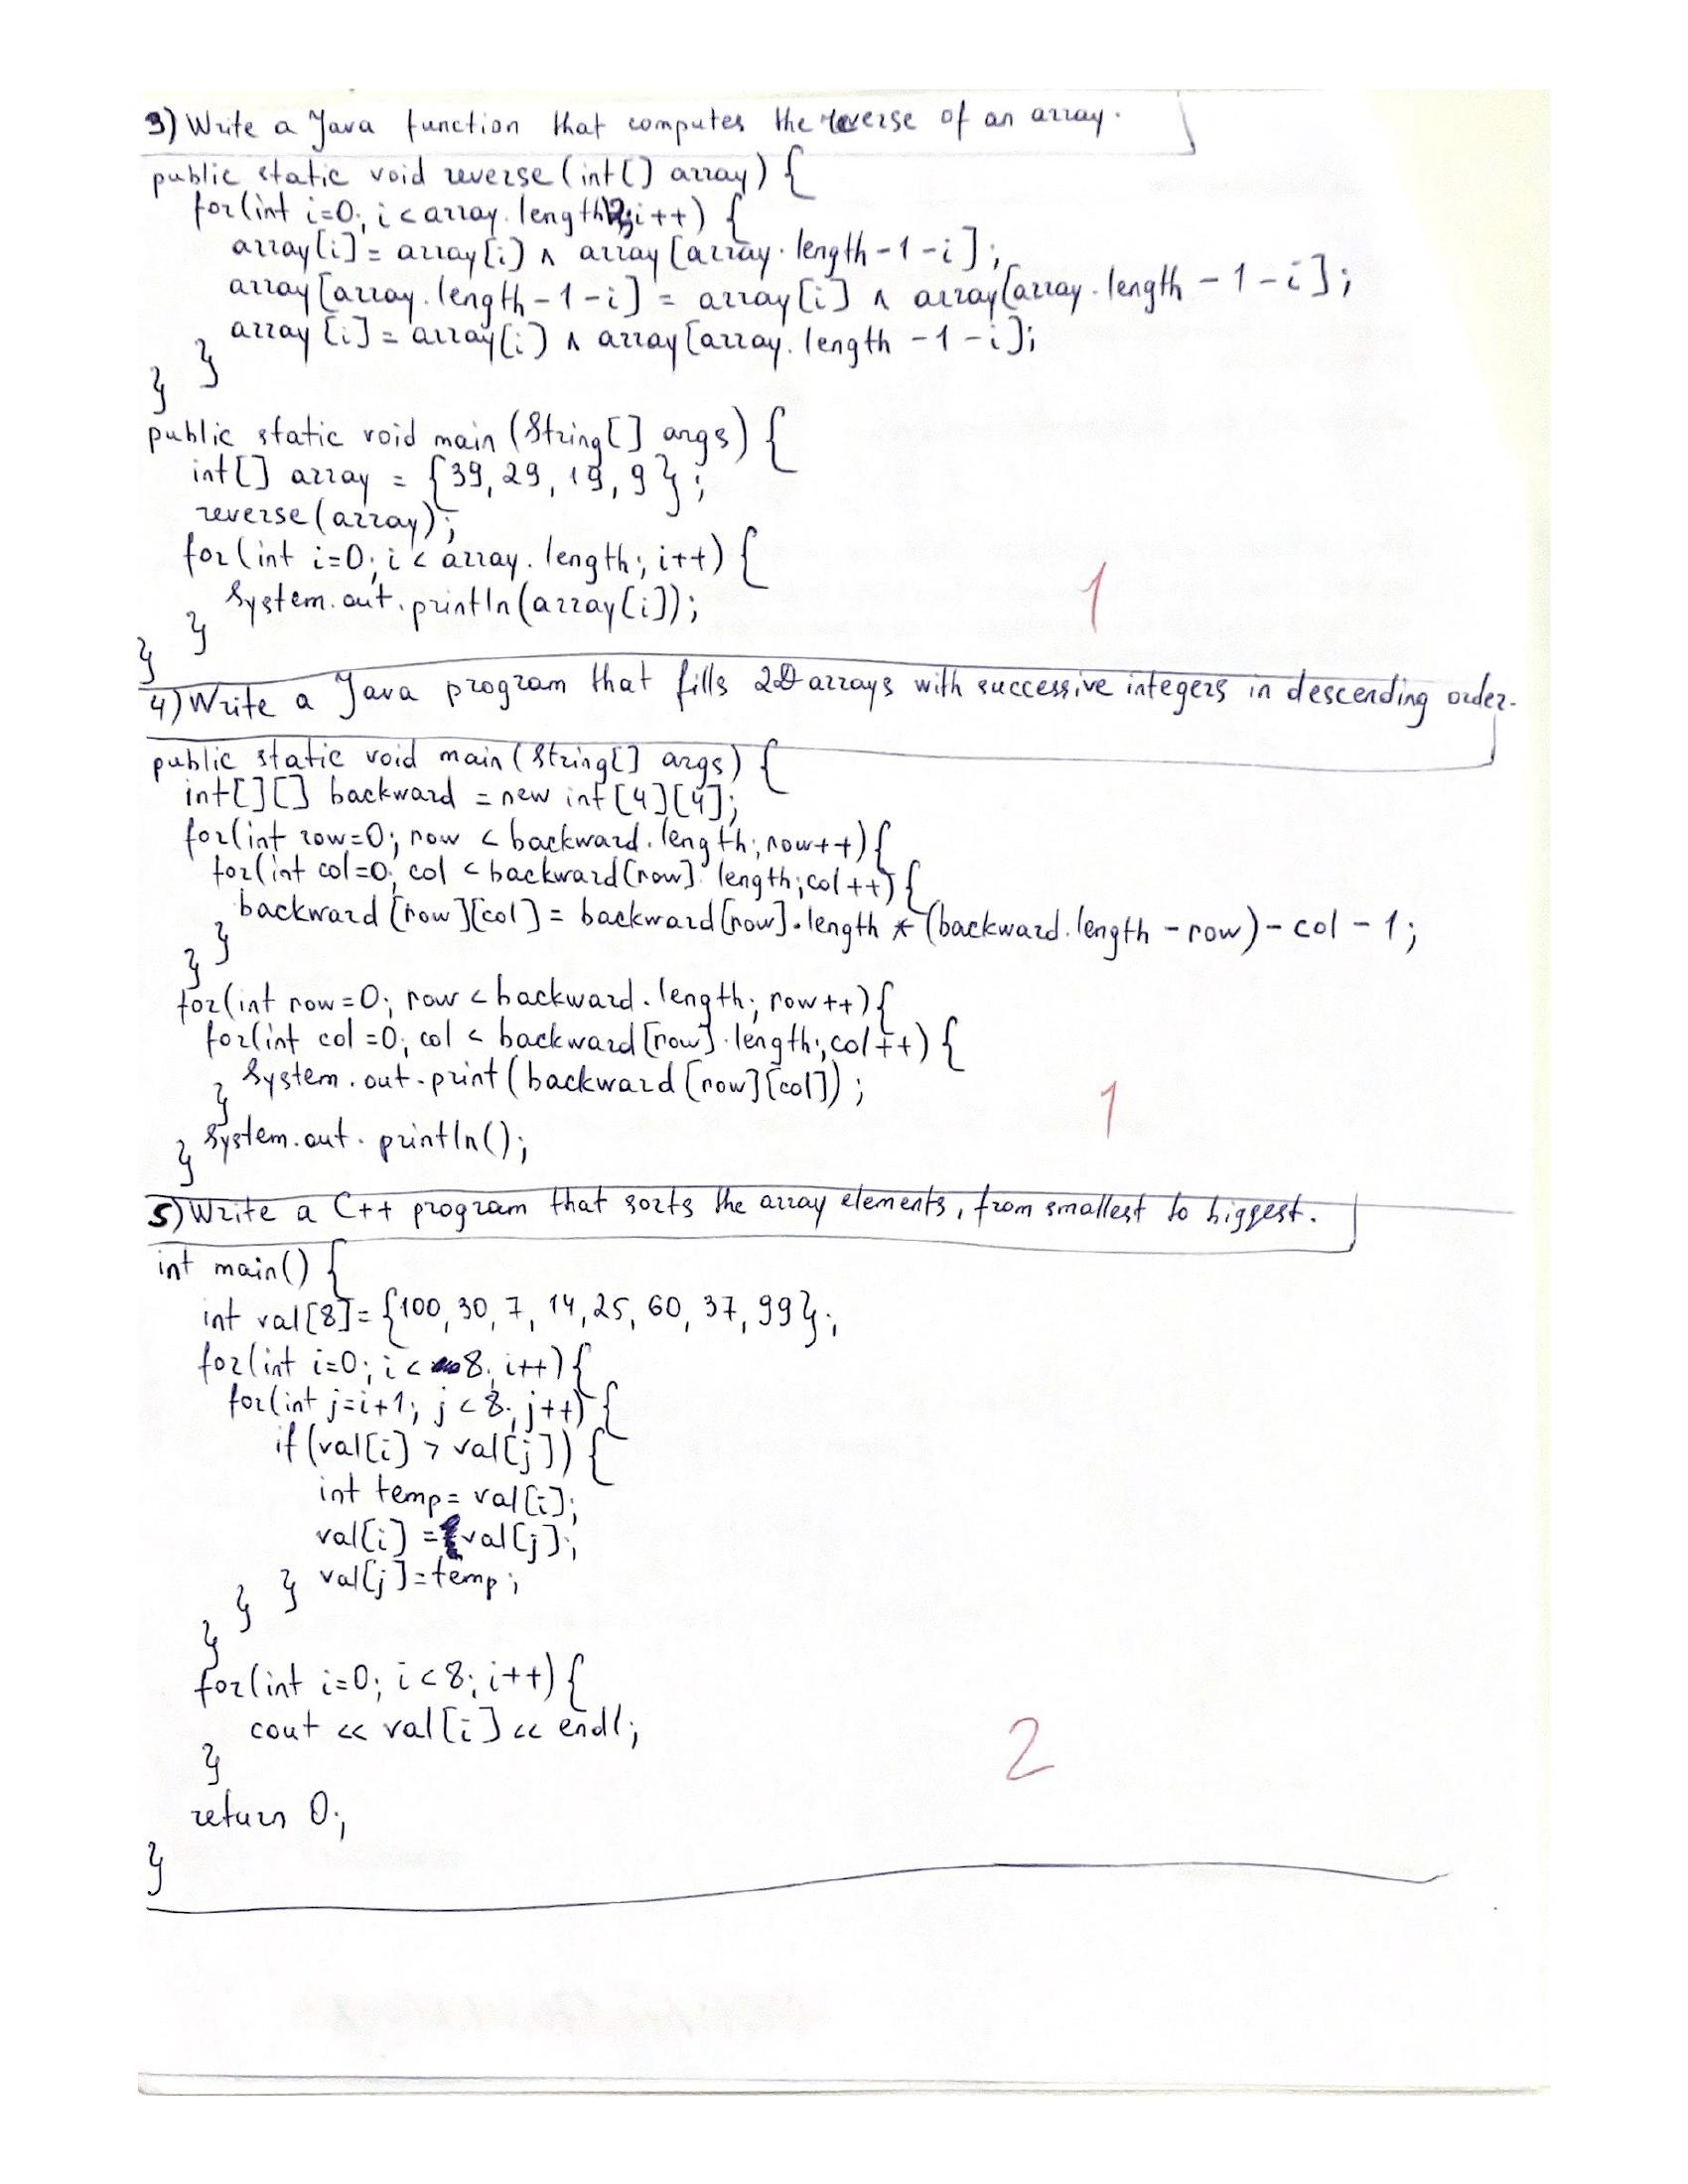 3) Write a Java function that computes the reverse of an array.
public static void reverse(int[] array) {
for(int i=0; i < array.length/2; i++) {
array[i] = array[i] ^ array[array.length-1-i];
array[array.length-1-i] = array[i] ^ array[array.length-1-i];
array[i] = array[i] ^ array[array.length-1-i];
}
}
public static void main (String[] args) {
int[] array = {39, 29, 19, 9};
reverse(array);
for(int i=0; i < array.length; i++) {
System.out.println(array[i]);
}
}
1
4) Write a Java program that fills 2D arrays with successive integers in descending order.
public static void main (String[] args) {
int[][] backward = new int[4][4];
for(int row=0; row < backward.length; row++){
for(int col=0; col < backward[row].length; col++){
backward[row][col] = backward[row].length * (backward.length - row) - col - 1;
}
}
for(int row=0; row < backward.length; row++){
for(int col=0; col < backward[row].length; col++) {
System.out.print(backward[row][col]);
}
System.out.println();
}
1
5) Write a C++ program that sorts the array elements, from smallest to biggest.
int main() {
int val[8]= {100, 30, 7, 14, 25, 60, 37, 99};
for(int i=0; i < 8; i++){
for(int j=i+1; j < 8; j++) {
if (val[i] > val[j]) {
int temp= val[i];
val[i] = val[j];
val[j]=temp;
}
}
}
for(int i=0; i<8; i++){
cout << val[i] << endl;
}
2
return 0;
}